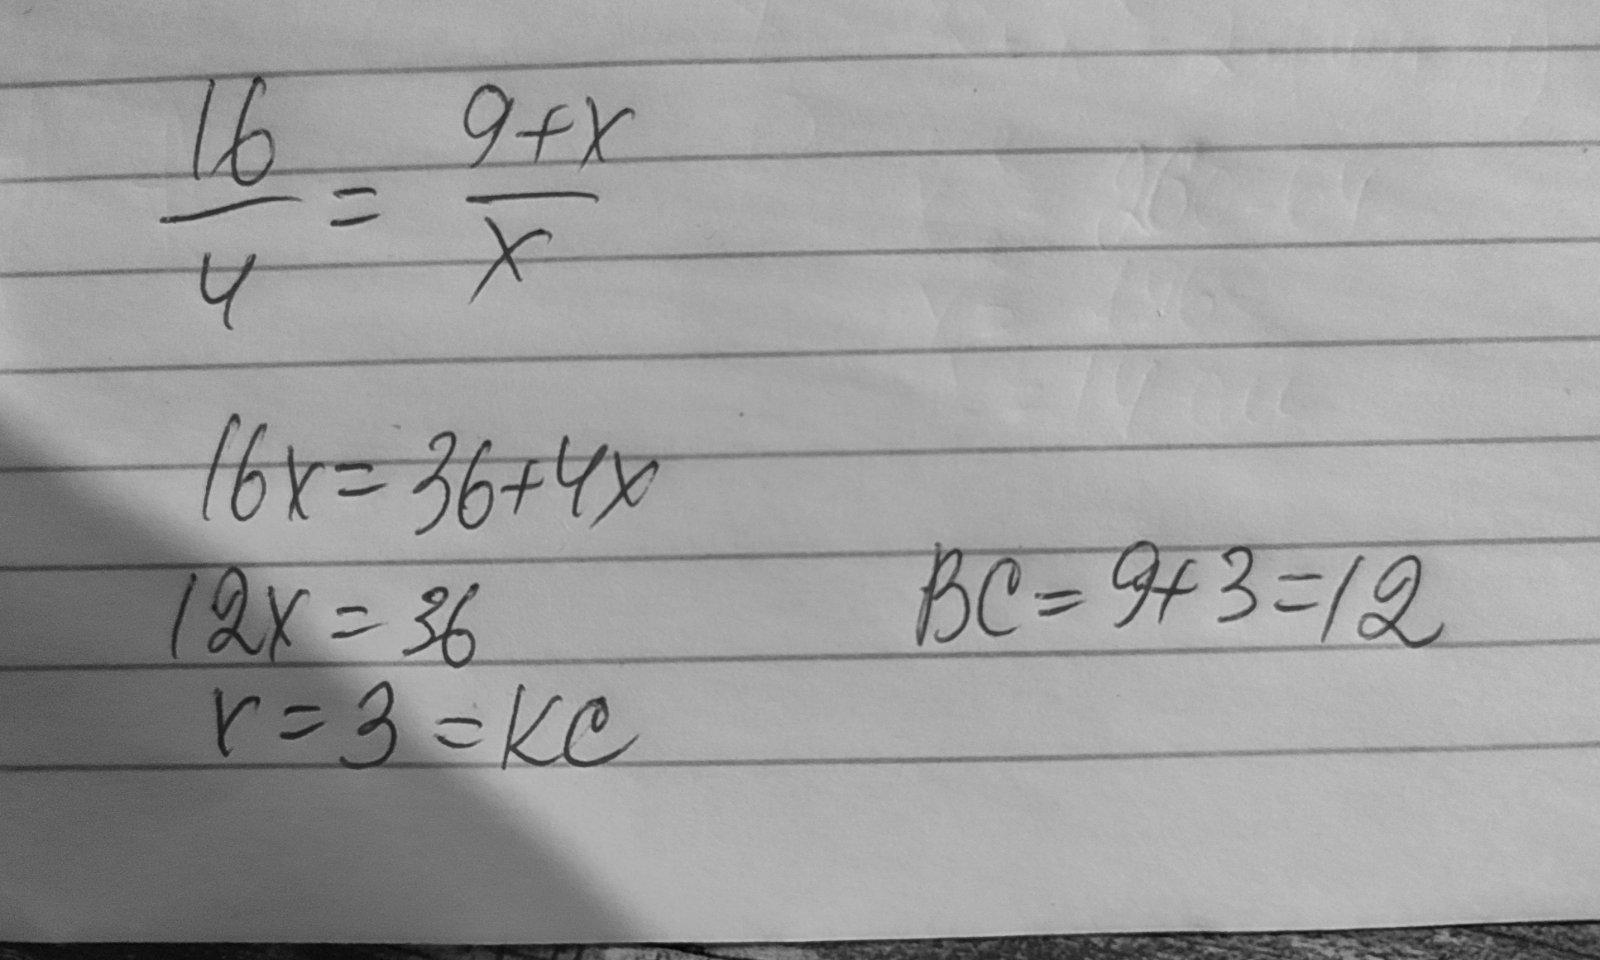 16/4 = 9+x/x
16x = 36+4x
12x = 36
BC = 9+3 = 12
x = 3 = KC